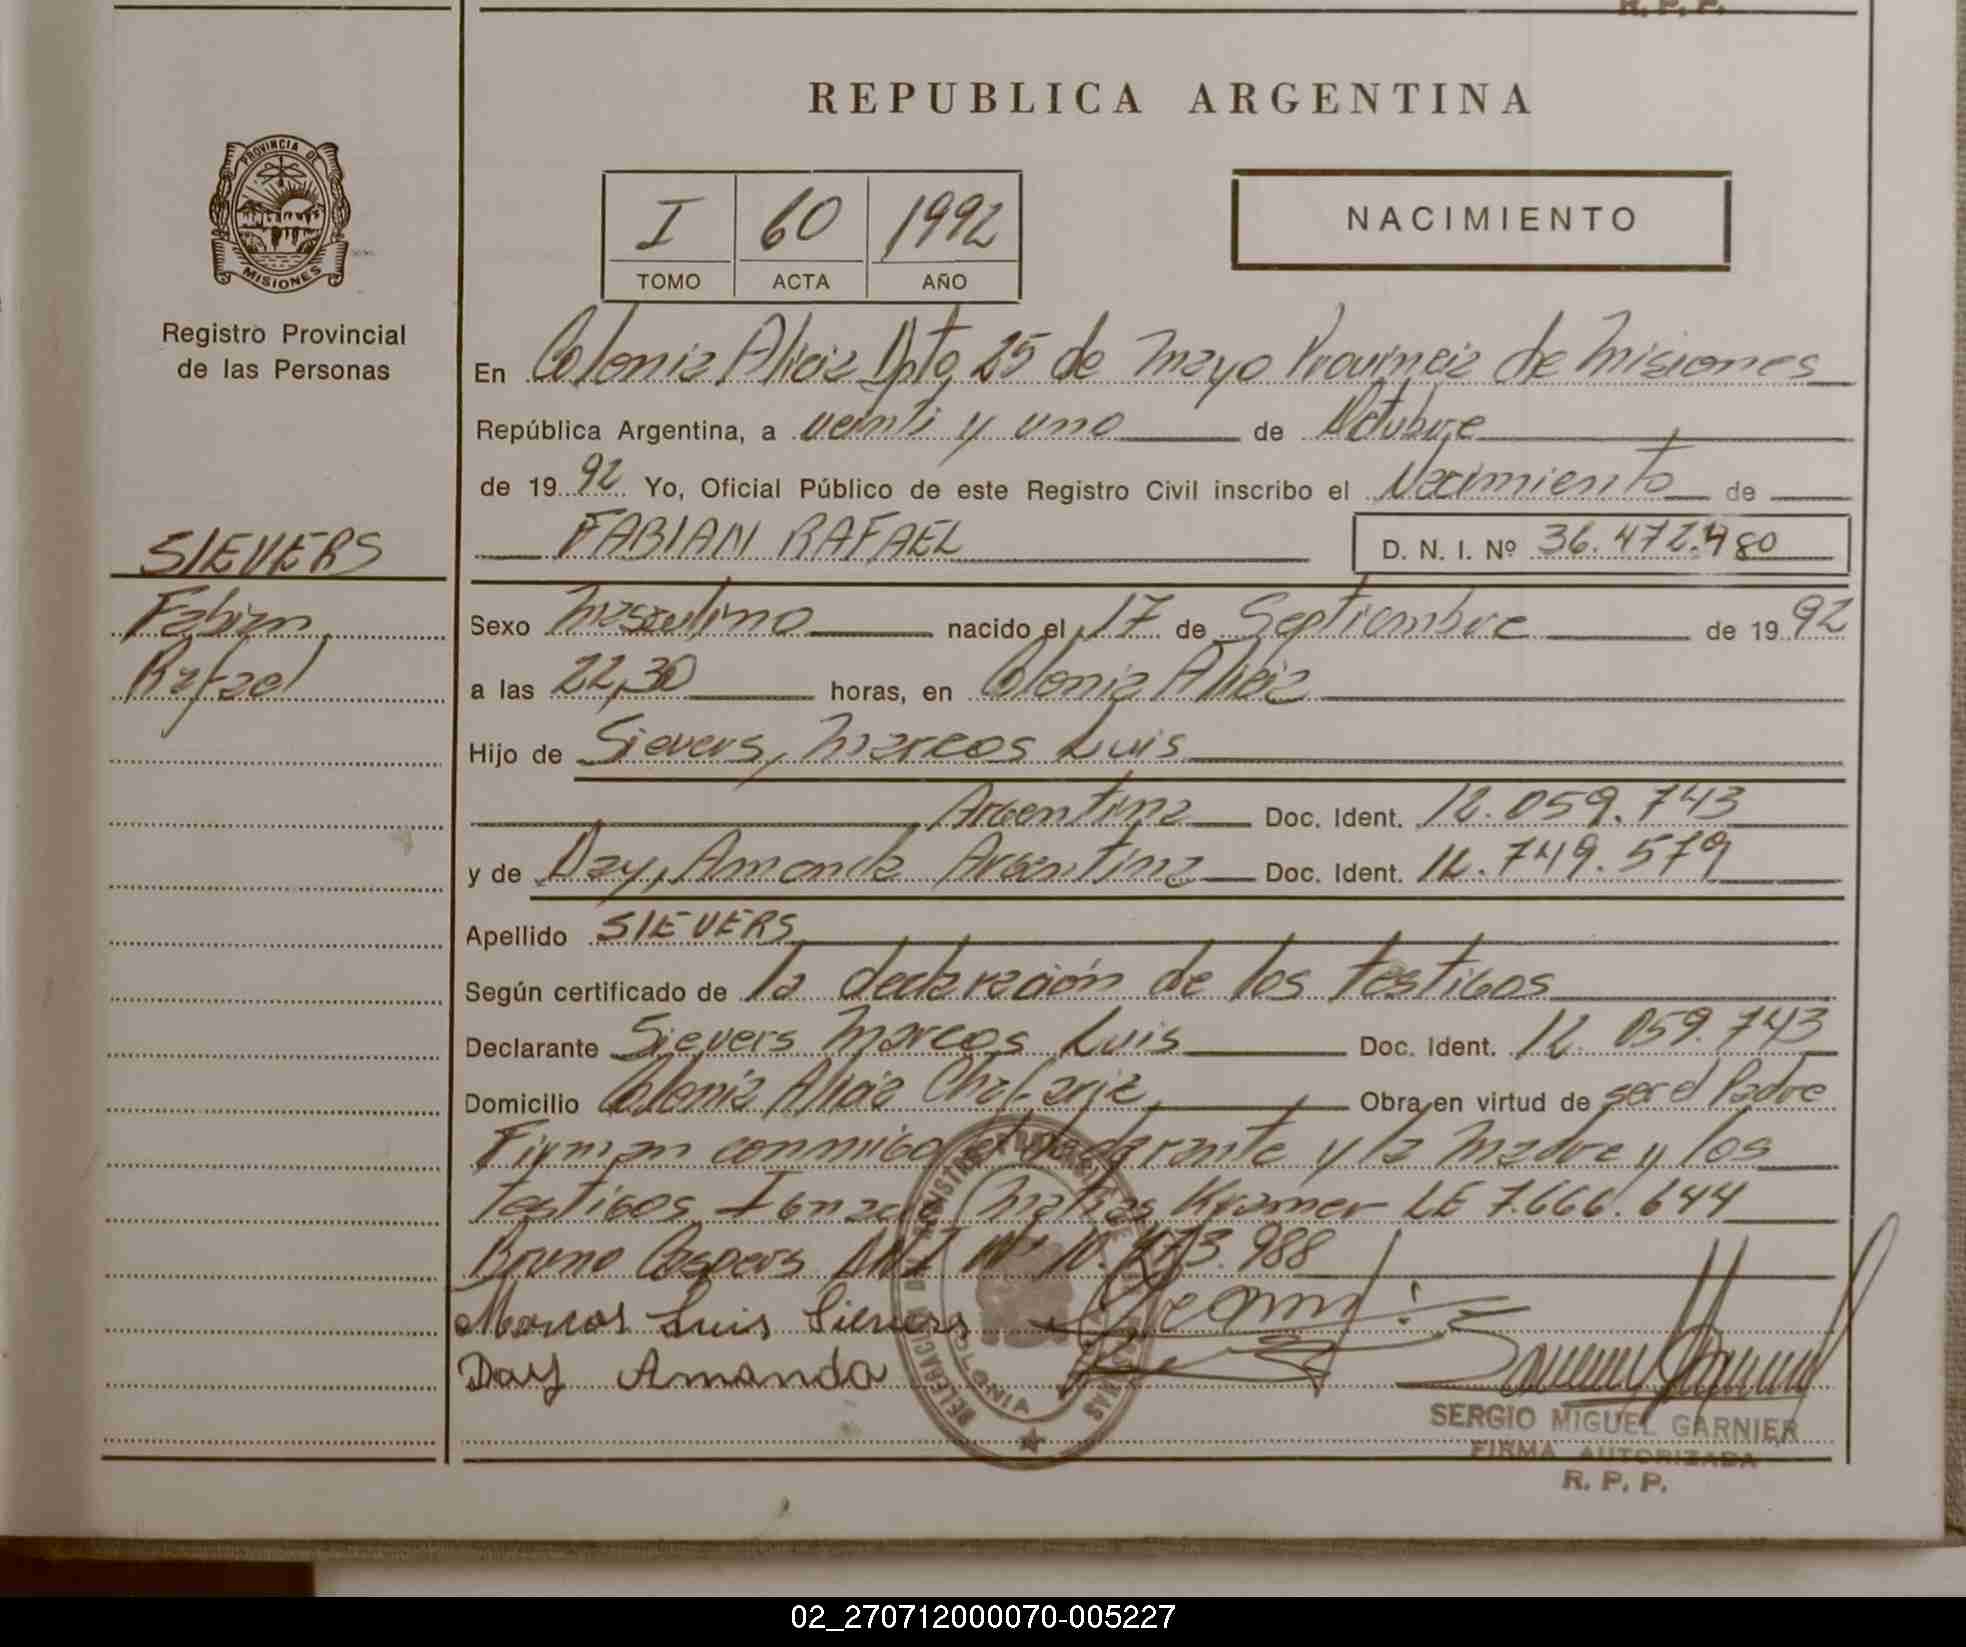 R. P. P.
REPUBLICA ARGENTINA
PROVINCIA DE
MISIONES
Registro Provincial
de las Personas
I 60 1992
TOMO ACTA AÑO
NACIMIENTO
En Colonia Alicia Dpto 25 de Mayo Provincia de Misiones
República Argentina, a veinti y uno de Octubre
de 1992 Yo, Oficial Público de este Registro Civil inscribo el Nacimiento de
SIEVERS
FABIAN RAFAEL D. N. I. Nº 36.472.480
Fabian
Rafael
Sexo Masculino nacido el 17 de Septiembre de 1992
a las 22,30 horas, en Colonia Alicia
Hijo de Sievers, Marcos Luis
Argentina Doc. Ident. 12.059.743
y de Day, Amanda Argentina Doc. Ident. 12.749.579
Apellido SIEVERS
Según certificado de la declaración de los testigos
Declarante Sievers Marcos Luis Doc. Ident. 12.059.743
Domicilio Colonia Alicia Obra en virtud de ser el Padre
Firman conmigo el declarante y la Madre y los
testigos Matias Kramer LE 7.666.644
Bruno Caspers DNI Nº
Marcos Luis Sievers
Day Amanda
SERGIO MIGUEL GARNIER
FIRMA AUTORIZADA
R. P. P.
02_270712000070-005227